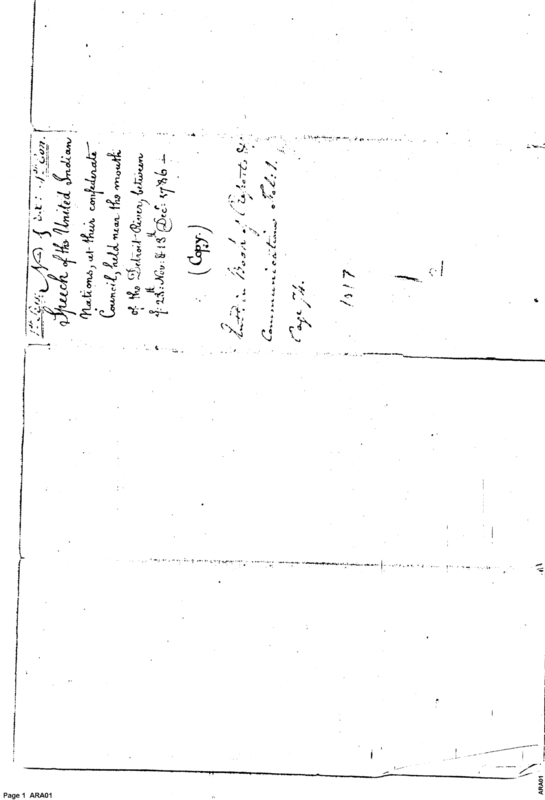 1st Con.
Speech of the United Indian
Nations, at their confederate
Council, held near the mouth
of the Detroit River, between
ye 28th Nov: & 18th Dec: 1786 —
(Copy.)
in Book of Reports &
Communications Vol: 1.
Page 74.
1017
Page 1 ARA01
ARA01